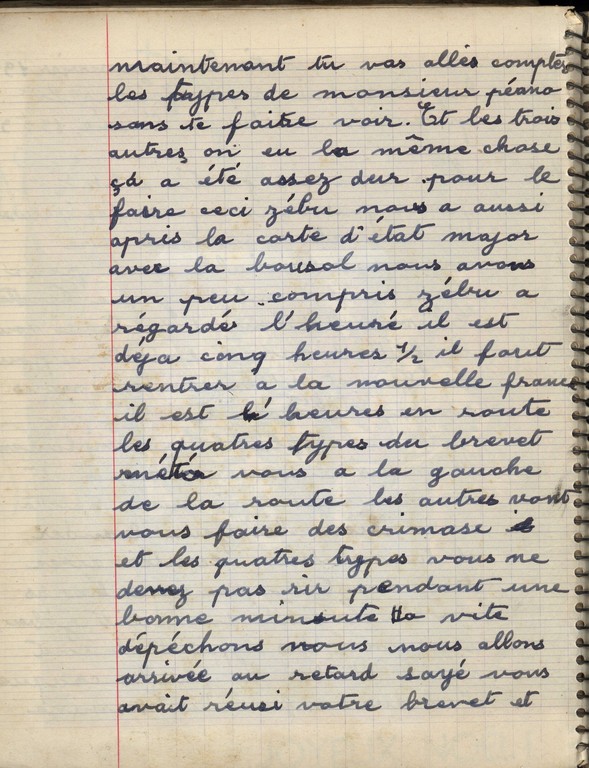 maintenant tu vas allés comptés
les types de monsieur péano
sans te faire voir. Et les trois
autres on eu la même chose
ça a été assez dur pour le
faire ceci zébu nous a aussi
apris la carte d'état major
avec la bousol nous avons
un peu compris zébu a
régardé l'heuré il est
déja cinq heures 1/2 il faut
rentrer a la nouvelle france
il est heures en route
les quatres types du brevet
vous a la gauche
de la route les autres vont
vous faire des crimase
et les quatres types vous ne
devez pas rir pendant une
bonne minute vite
dépéchons nous nous allons
arrivée au retard sayé vous
avait réusi votre brevet et